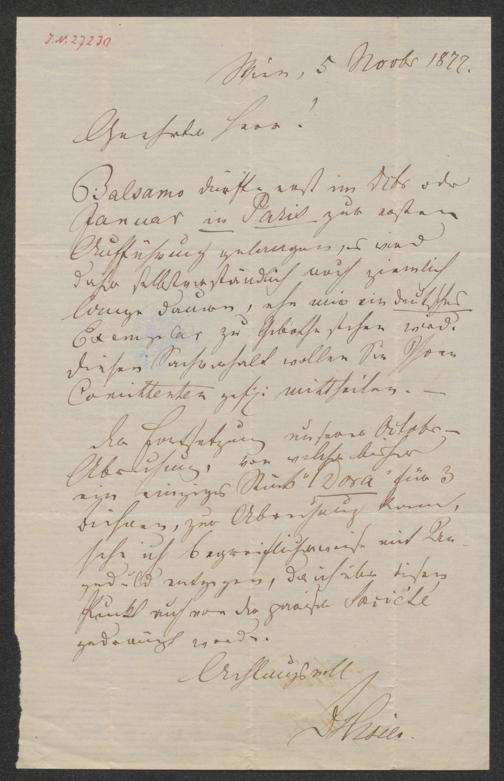 J.N. 27230
Wien, 5 Novbr 1877.
Geehrter Herr!
Balsamo dürfte erst im Dcbr oder
Januar in Paris zur ersten
Aufführung gelangen, es wird
daher selbstverständlich noch ziemlich
lange dauern, ehe mir ein deutsches
Exemplar zu Gebothe stehen wird.
Diesen Sachverhalt wollen Sie Ihren
Comittenten mittheilen. –
Der Fortsetzung unserer Octobr-
Abrechnung, von welcher bisher
ein einziges Stück "Dora" für 3
Bühnen, zur Abrechnung kam,
sehe ich begreiflicherweise mit Un-
geduld entgegen, da ich über diesen
Punkt auch von der Pariser Société
gedrängt werde.
Achtungsvoll